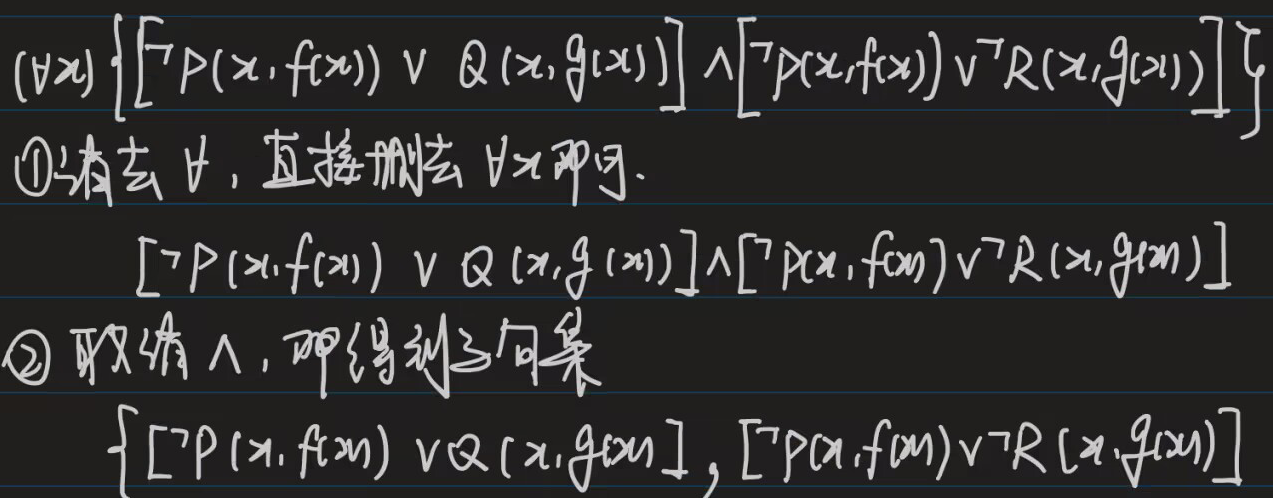 (∀x){[¬P(x,f(x)) ∨ Q(x,g(x))]∧[¬P(x,f(x))∨¬R(x,g(x))]}
①消去 ∀, 直接删去 ∀x即可.
[¬P(x,f(x)) ∨ Q(x,g(x))]∧[¬P(x,f(x))∨¬R(x,g(x))]
② 取消 ∧, 即得到子句集
{[¬P(x,f(x)) ∨Q(x,g(x)], [¬P(x,f(x))∨¬R(x,g(x))]